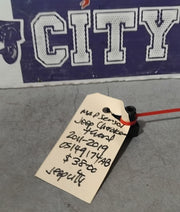 CITY
MAP Sensor
Jeep Cherokee
4 Grand
2011-2019
05149174AB
$38.00
Jeep City